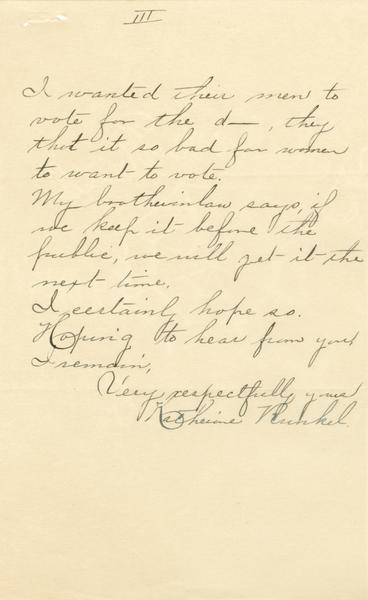 III
I wanted their men to
vote for the d—, they
thot it so bad for women
to want to vote.
My brotherinlaw says, if
we keep it before the
public, we will get it the
next time.
I certainly hope so.
Hoping to hear from you
I remain,
Very respectfully yours
Katherine Kunkel.